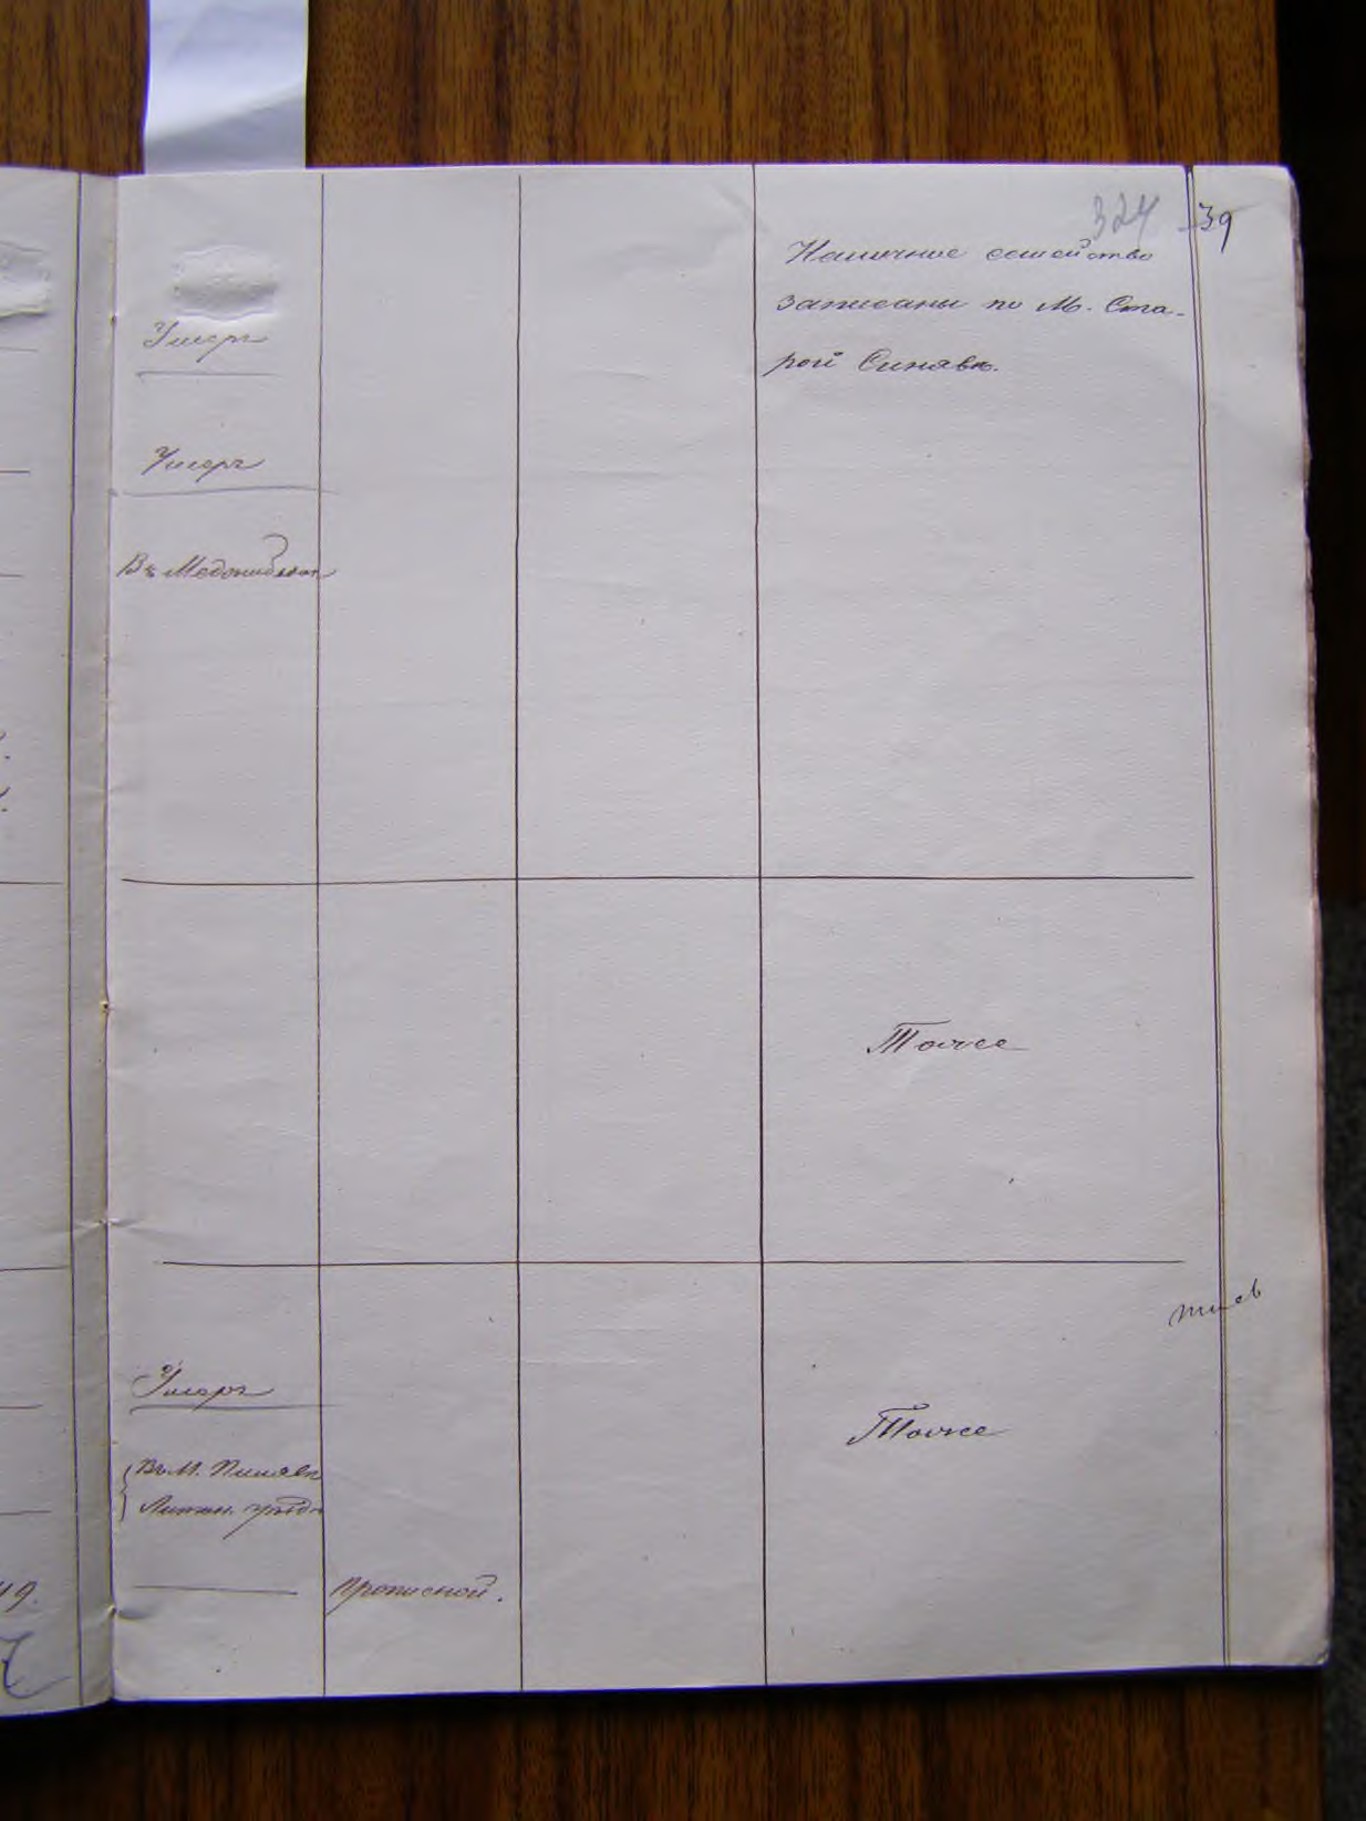 324
39
Наличное семейство
записаны по М. Ста-
рой Синявк.
Умеръ
Умеръ
Въ Меджибож
Тоже
Умеръ
Тоже
Въ М. Пиляв
Литин. уѣзд
прописной.
49.